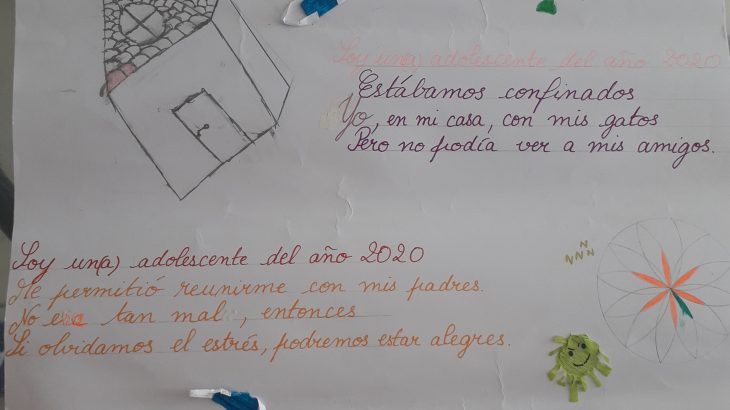 Soy un(a) adolescente del año 2020
Estábamos confinados
Yo, en mi casa, con mis gatos
Pero no podía ver a mis amigos.
Soy un(a) adolescente del año 2020
Me permitió reunirme con mis padres.
No era tan mal, entonces
Si olvidamos el estrés, podremos estar alegres.
N
N N N